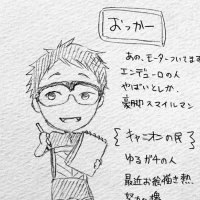 おっかー
あの、モーターついてます
エンデューロの人
やばいとしか、
豪脚スマイルマン
{キャニオンの民}
ゆるガチの人
最近お絵描き熱